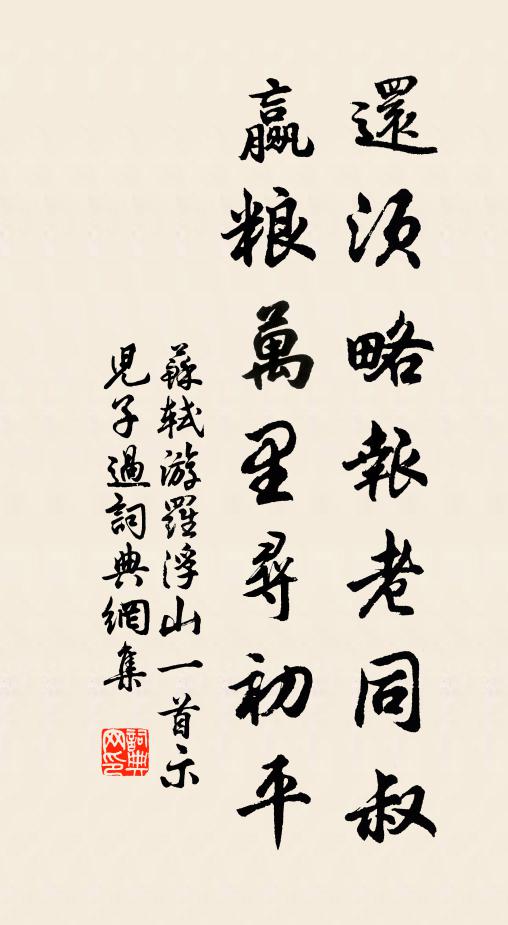 還須略報老同叔
贏粮萬里尋初平
蘇軾游羅浮山一首示
兒子過詞典網集
詞典网印